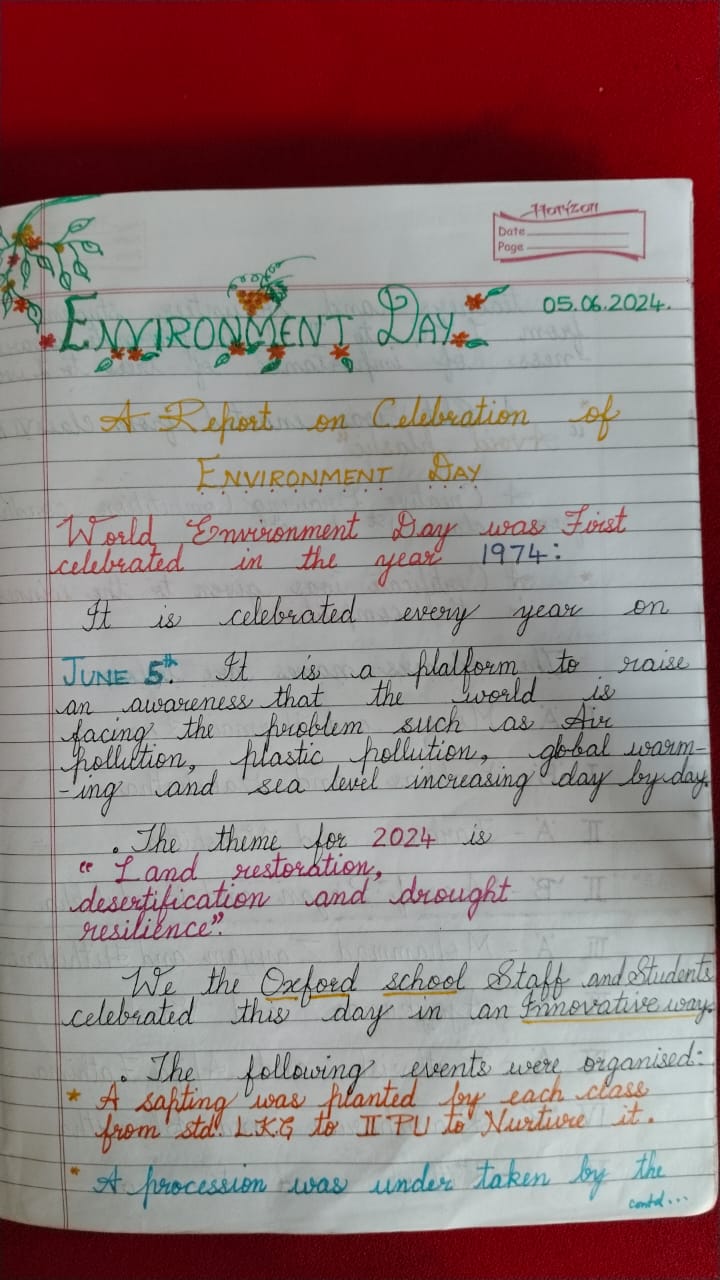 Horizon
Date
Page
05.06.2024.
ENVIRONMENT DAY
A Report on Celebration of
ENVIRONMENT DAY
World Environment Day was First
celebrated in the year 1974:
It is celebrated every year on
JUNE 5th. It is a platform to raise
an awareness that the world is
facing the problem such as Air
pollution, plastic pollution, global warm-
-ing and sea level increasing day by day.
. The theme for 2024 is
"Land restoration,
desertification and drought
resilience".
We the Oxford school Staff and Students
celebrated this day in an Innovative way.
. The following events were organised:
* A sapting was planted by each class
from std. LKG to II PU to Nurture it.
* A procession was under taken by the
contd...